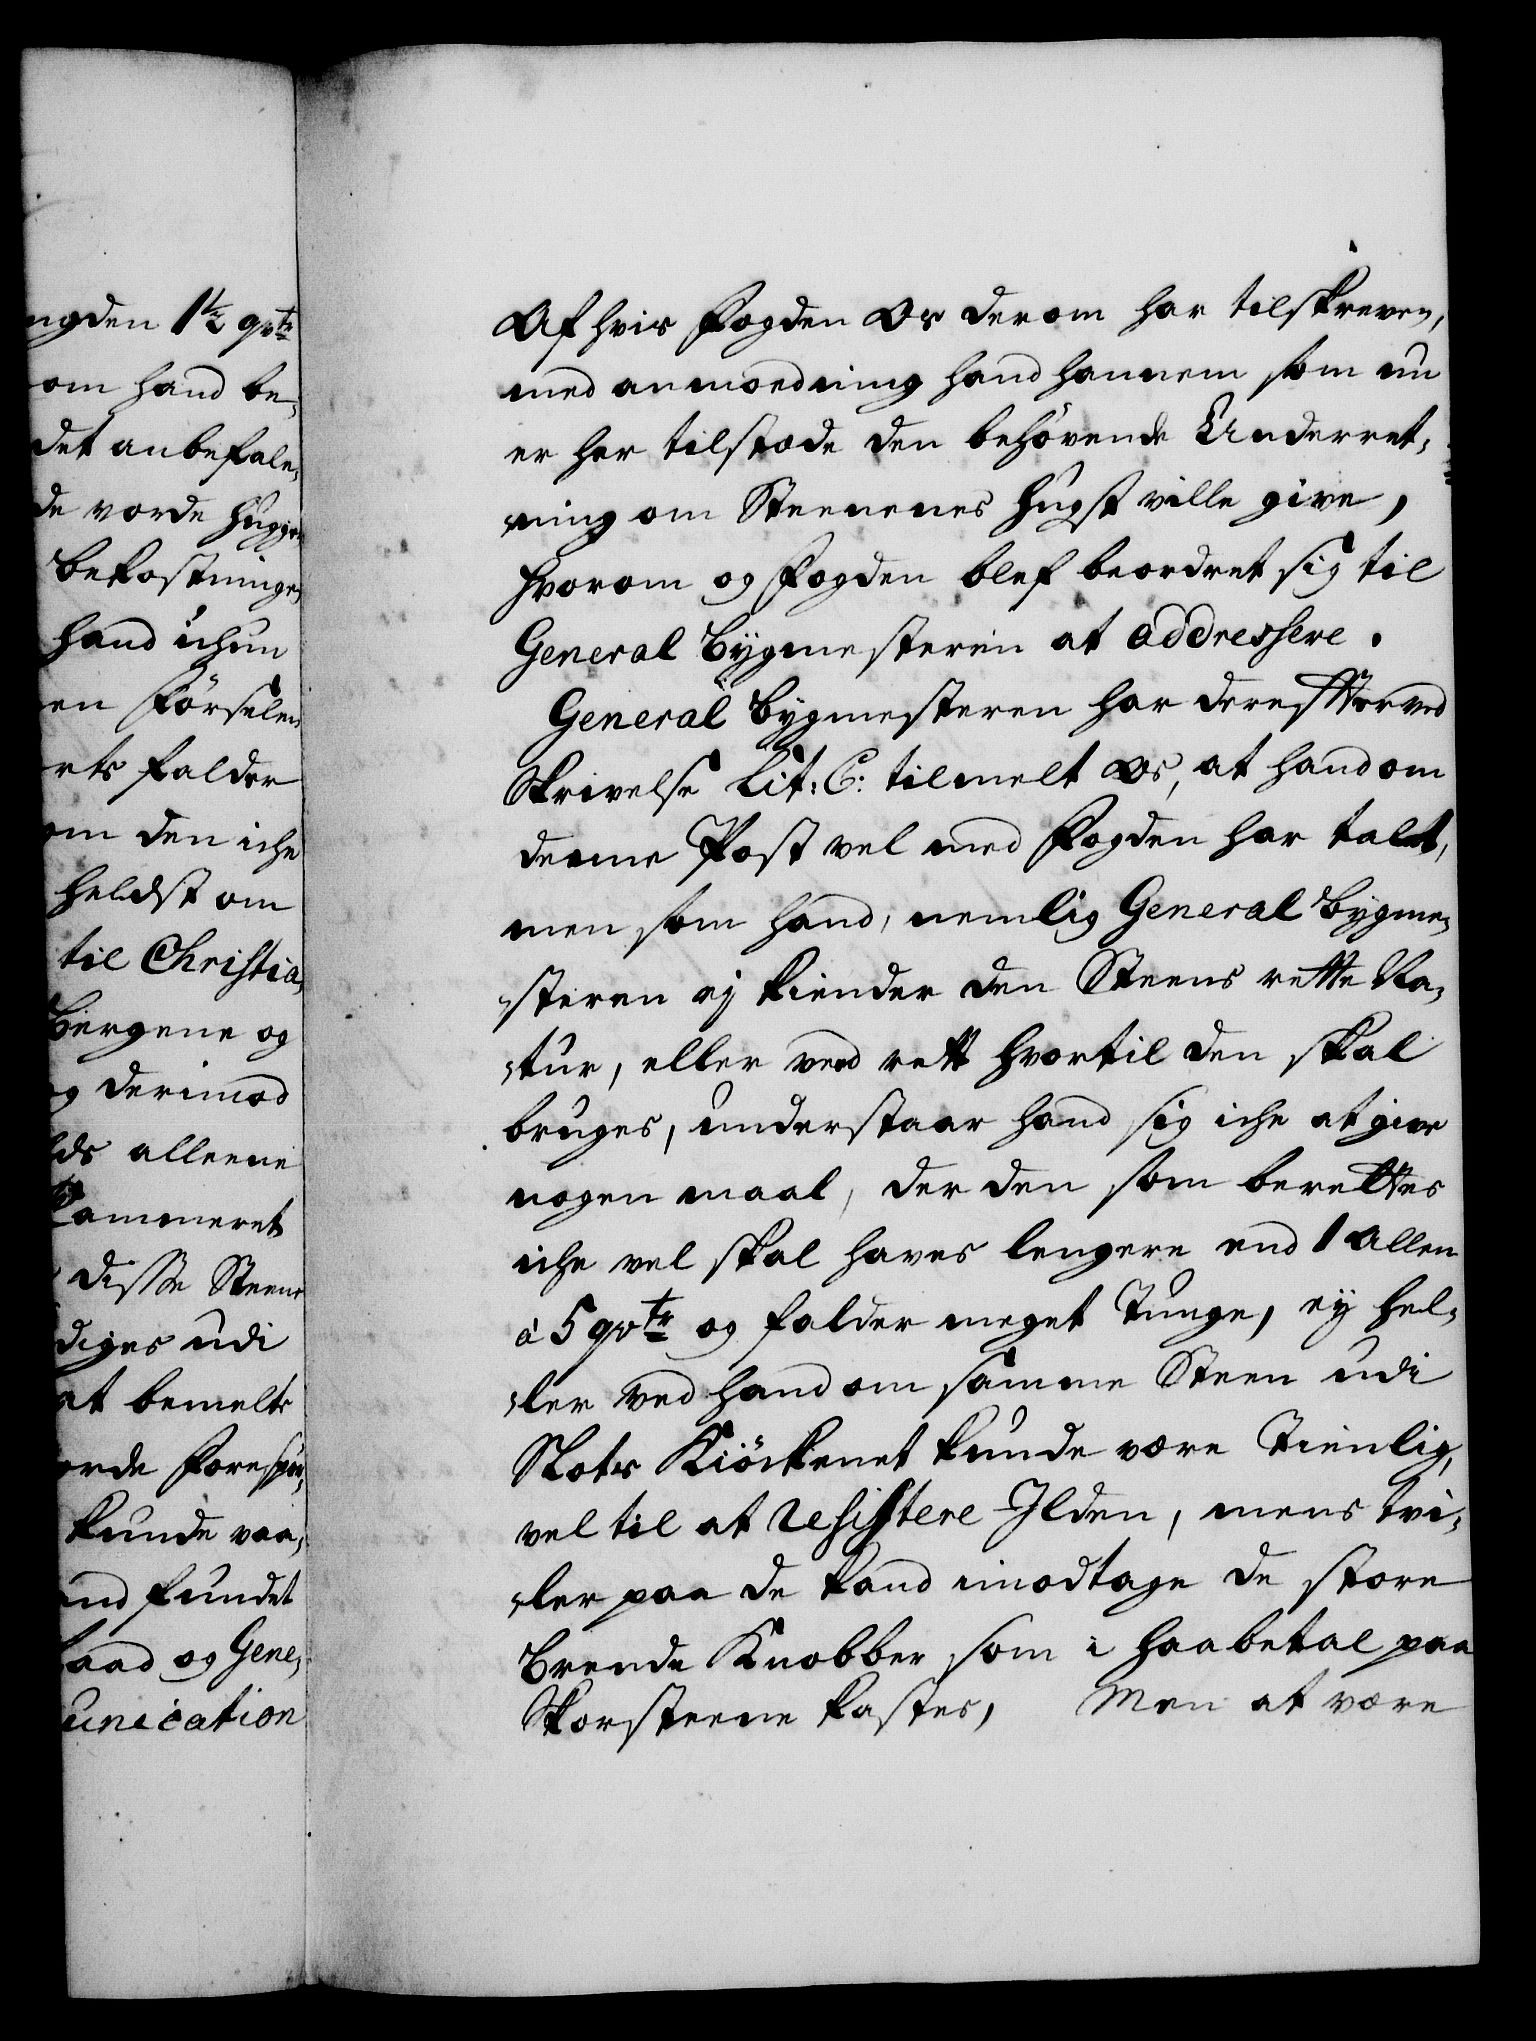 ngden 1½ qvtr
om hand be,
det anbefale,
de vorde hugge
bekostninge,
hand ichun
en Førselen
rts falder
om den iche
heldst om
til Christia,
Bergene og
g derimod
lds alleene
Cammeret
disse Steene
diges udi
at bemelte
orde Forespør,
kunde vaa,
nd fundet
aad og Gene,
unication
Af hvis Fogden Os derom har tilskreven,
med anmoedning hand hannem som nu
er her tilstæde den behøvende Underret,
,ning om Steenenes hugst ville give,
hvorom og Fogden blef beordret sig til
General Bygmesteren at addressere.
General Bygmesteren har derefter ved
Skrivelse Lit: C: tilmelt Os, at hand om
denne Post vel med Fogden har talt,
men som hand, nemlig General Bygme,
,steren ej kiender den Steens rette Na,
,tur, eller veed rett hvortil den skal
bruges, understaar hand sig iche at give
nogen maal, der den som berettes
iche vel skal haves lengere end 1 Allen
à 5 qvtr og falder meget Tunge, ey hel,
,ler ved hand om samme Steen udi
Slots Kiøckenet kunde være Tienlig,
vel til at resistere Ilden, mens tvi,
,ler paa de kand imodtage de store
Brende Knobber som i haabetal paa
Skorsteene kastes, Men at være